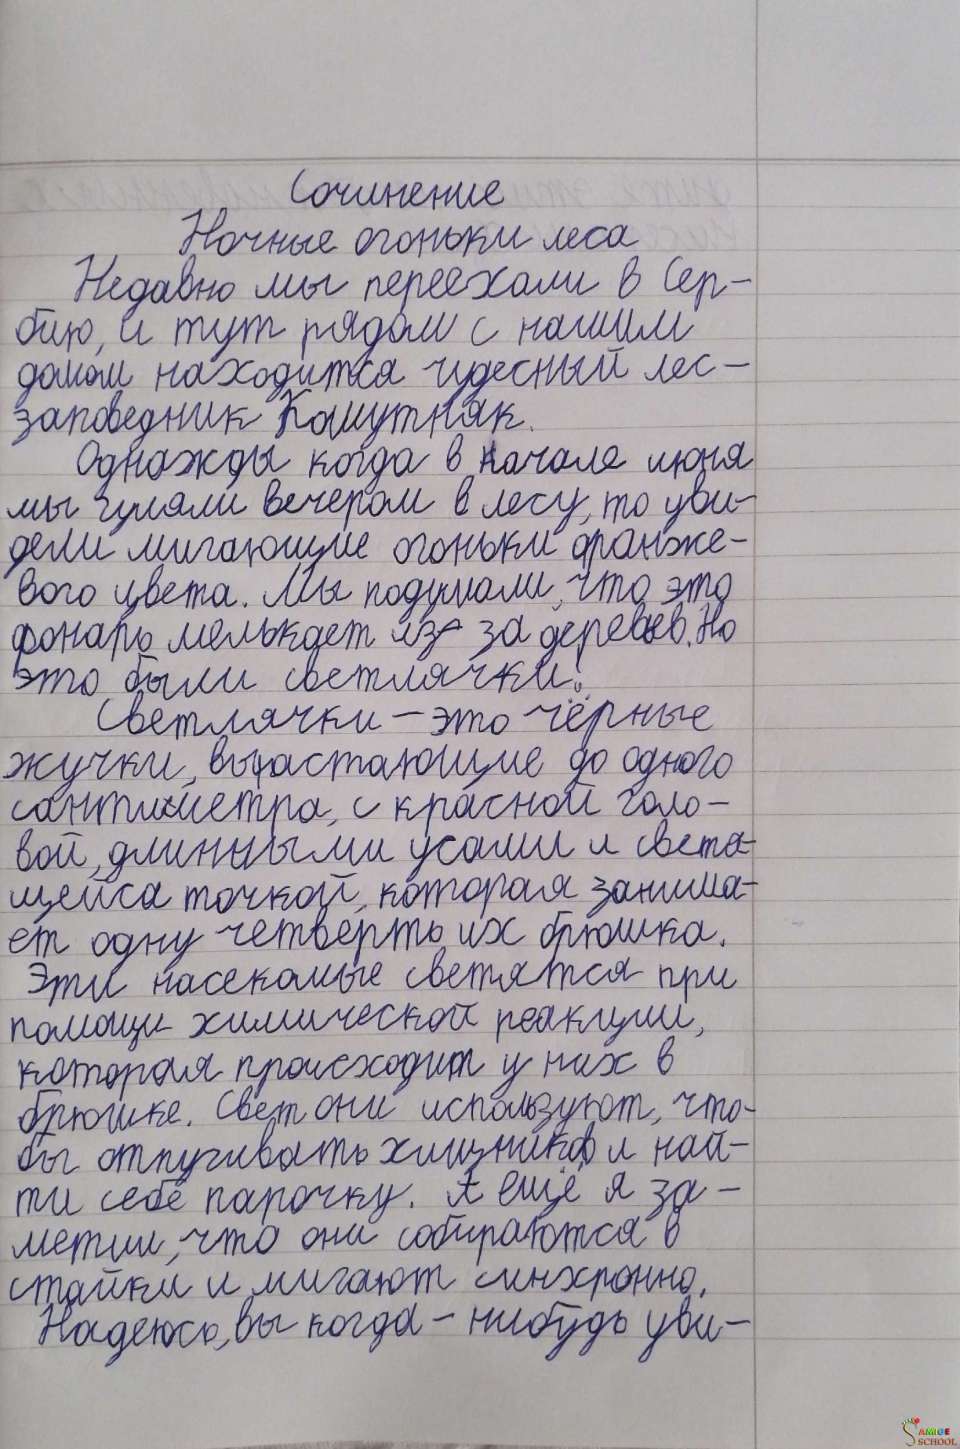 Сочинение
Ночные огоньки леса
Недавно мы переехали в Сер-
бию, и тут рядом с нашим
домом находится чудесный лес-
заповедник Кошутняк.
Однажды когда в начале июня
мы гуляли вечером в лесу, то уви-
дели мигающие огоньки оранже-
вого цвета. Мы подумали, что это
фонарь мелькает из-за деревьев. Но
это были светлячки!
Светлячки - это чёрные
жучки, вырастающие до одного
сантиметра, с красной голо-
вой, длинными усами и светя-
щейся точкой, которая занима-
ет одну четверть их брюшка.
Эти насекомые светятся при
помощи химической реакции,
которая происходит у них в
брюшке. Свет они используют, что-
бы отпугивать хищников и най-
ти себе парочку. А ещё я за-
метил, что они собираются в
стайки и мигают синхронно.
Надеюсь, вы когда-нибудь уви-
SAMIGE
SCHOOL